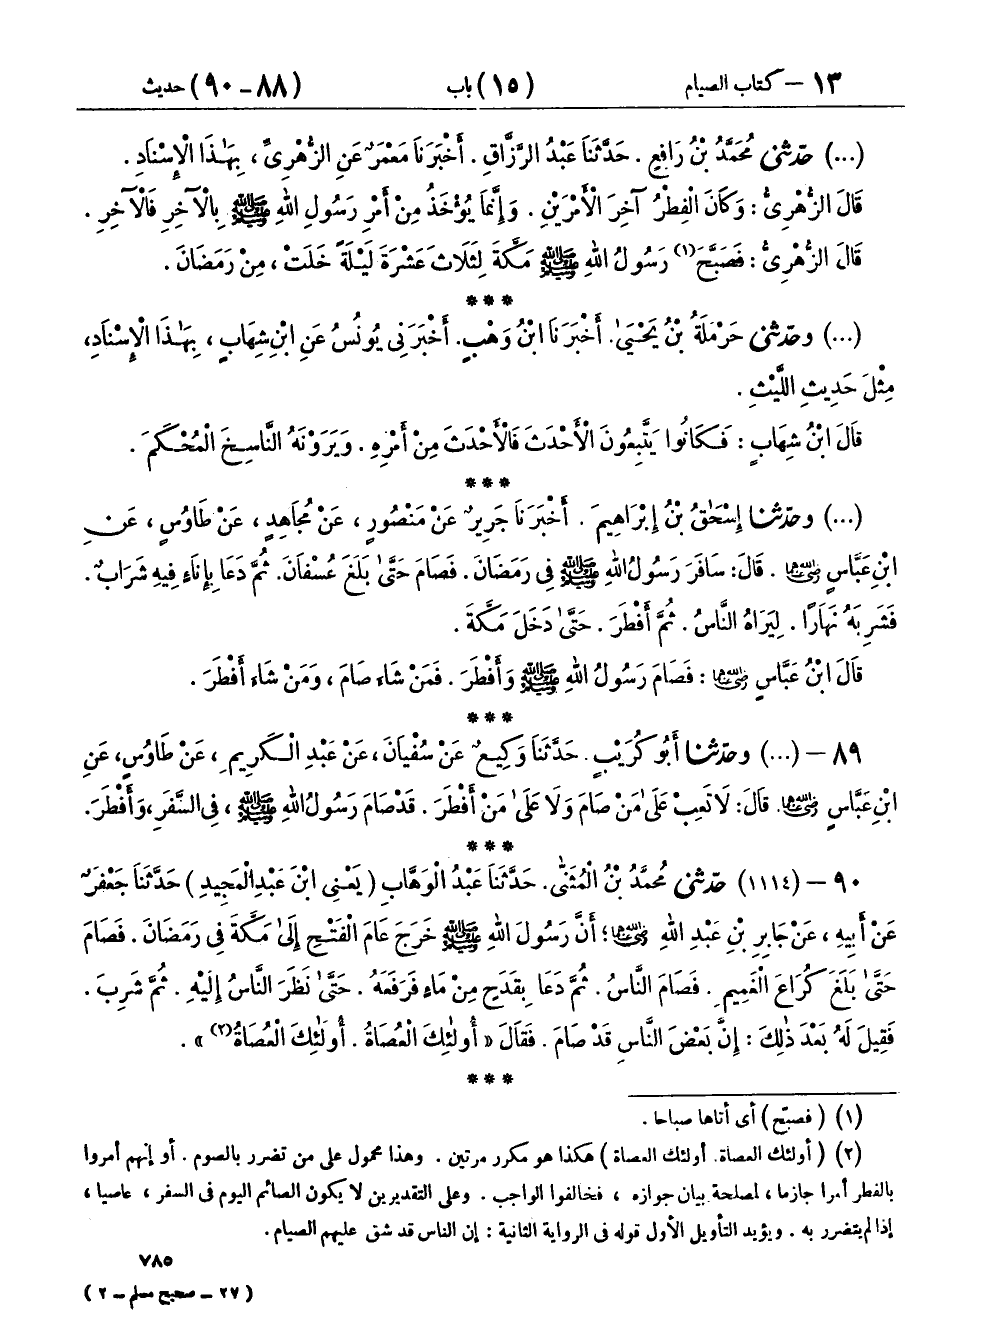 ١٣ – كتاب الصيام (١٥) باب (٨٨ – ٩٠) حديث
(...) حَدَّثَنِي مُحَمَّدُ بْنُ رَافِعٍ . حَدَّثَنَا عَبْدُ الرَّزَّاقِ . أَخْبَرَنَا مَعْمَرٌ عَنِ الزُّهْرِيِّ ، بِهَٰذَا الْإِسْنَادِ .
قَالَ الزُّهْرِيُّ : وَكَانَ الْفِطْرُ آخِرَ الْأَمْرَيْنِ . وَإِنَّمَا يُؤْخَذُ مِنْ أَمْرِ رَسُولِ اللهِ ﷺ بِالْآخِرِ فَالْآخِرِ .
قَالَ الزُّهْرِيُّ : فَصَبَّحَ(١) رَسُولُ اللهِ ﷺ مَكَّةَ لِثَلَاثَ عَشْرَةَ لَيْلَةً خَلَتْ ، مِنْ رَمَضَانَ .
***
(...) وحَدَّثَنِي حَرْمَلَةُ بْنُ يَحْيَىٰ . أَخْبَرَنَا ابْنُ وَهْبٍ . أَخْبَرَنِي يُونُسُ عَنِ ابْنِ شِهَابٍ ، بِهَٰذَا الْإِسْنَادِ ،
مِثْلَ حَدِيثِ اللَّيْثِ .
قَالَ ابْنُ شِهَابٍ : فَكَانُوا يَتَّبِعُونَ الْأَحْدَثَ فَالْأَحْدَثَ مِنْ أَمْرِهِ . وَيَرَوْنَهُ النَّاسِخَ الْمُحْكَمَ .
***
(...) وحَدَّثَنَا إِسْحَٰقُ بْنُ إِبْرَاهِيمَ . أَخْبَرَنَا جَرِيرٌ عَنْ مَنْصُورٍ ، عَنْ مُجَاهِدٍ ، عَنْ طَاوُسٍ ، عَنِ
ابْنِ عَبَّاسٍ رضي الله عنهما . قَالَ : سَافَرَ رَسُولُ اللهِ ﷺ فِي رَمَضَانَ . فَصَامَ حَتَّىٰ بَلَغَ عُسْفَانَ . ثُمَّ دَعَا بِإِنَاءٍ فِيهِ شَرَابٌ .
فَشَرِبَهُ نَهَارًا . لِيَرَاهُ النَّاسُ . ثُمَّ أَفْطَرَ . حَتَّىٰ دَخَلَ مَكَّةَ .
قَالَ ابْنُ عَبَّاسٍ رضي الله عنهما : فَصَامَ رَسُولُ اللهِ ﷺ وَأَفْطَرَ . فَمَنْ شَاءَ صَامَ ، وَمَنْ شَاءَ أَفْطَرَ .
***
٨٩ – (...) وحَدَّثَنَا أَبُو كُرَيْبٍ . حَدَّثَنَا وَكِيعٌ عَنْ سُفْيَانَ ، عَنْ عَبْدِ الْكَرِيمِ ، عَنْ طَاوُسٍ ، عَنِ
ابْنِ عَبَّاسٍ رضي الله عنهما . قَالَ : لَا تَعِبْ عَلَىٰ مَنْ صَامَ وَلَا عَلَىٰ مَنْ أَفْطَرَ . قَدْ صَامَ رَسُولُ اللهِ ﷺ ، فِي السَّفَرِ ، وَأَفْطَرَ .
***
٩٠ – (١١١٤) حَدَّثَنِي مُحَمَّدُ بْنُ الْمُثَنَّىٰ . حَدَّثَنَا عَبْدُ الْوَهَّابِ ( يَعْنِي ابْنَ عَبْدِ الْمَجِيدِ ) حَدَّثَنَا جَعْفَرٌ
عَنْ أَبِيهِ ، عَنْ جَابِرِ بْنِ عَبْدِ اللهِ رضي الله عنهما ؛ أَنَّ رَسُولَ اللهِ ﷺ خَرَجَ عَامَ الْفَتْحِ إِلَىٰ مَكَّةَ فِي رَمَضَانَ . فَصَامَ
حَتَّىٰ بَلَغَ كُرَاعَ الْغَمِيمِ . فَصَامَ النَّاسُ . ثُمَّ دَعَا بِقَدَحٍ مِنْ مَاءٍ فَرَفَعَهُ . حَتَّىٰ نَظَرَ النَّاسُ إِلَيْهِ . ثُمَّ شَرِبَ .
فَقِيلَ لَهُ بَعْدَ ذَٰلِكَ : إِنَّ بَعْضَ النَّاسِ قَدْ صَامَ . فَقَالَ « أُولَٰئِكَ الْعُصَاةُ . أُولَٰئِكَ الْعُصَاةُ(٢) » .
***
(١) ( فصبّح ) أي أتاها صباحا .
(٢) ( أولئك العصاة. أولئك العصاة ) هكذا هو مكرر مرتين . وهذا محمول على من تضرر بالصوم . أو إنهم أمروا
بالفطر أمرا جازما ، لمصلحة بيان جوازه ، فخالفوا الواجب . وعلى التقديرين لا يكون الصائم اليوم في السفر ، عاصيا ،
إذا لم يتضرر به . ويؤيد التأويل الأول قوله في الرواية الثانية : إن الناس قد شق عليهم الصيام .
٧٨٥
( ٢٧ – صحيح مسلم – ٢ )